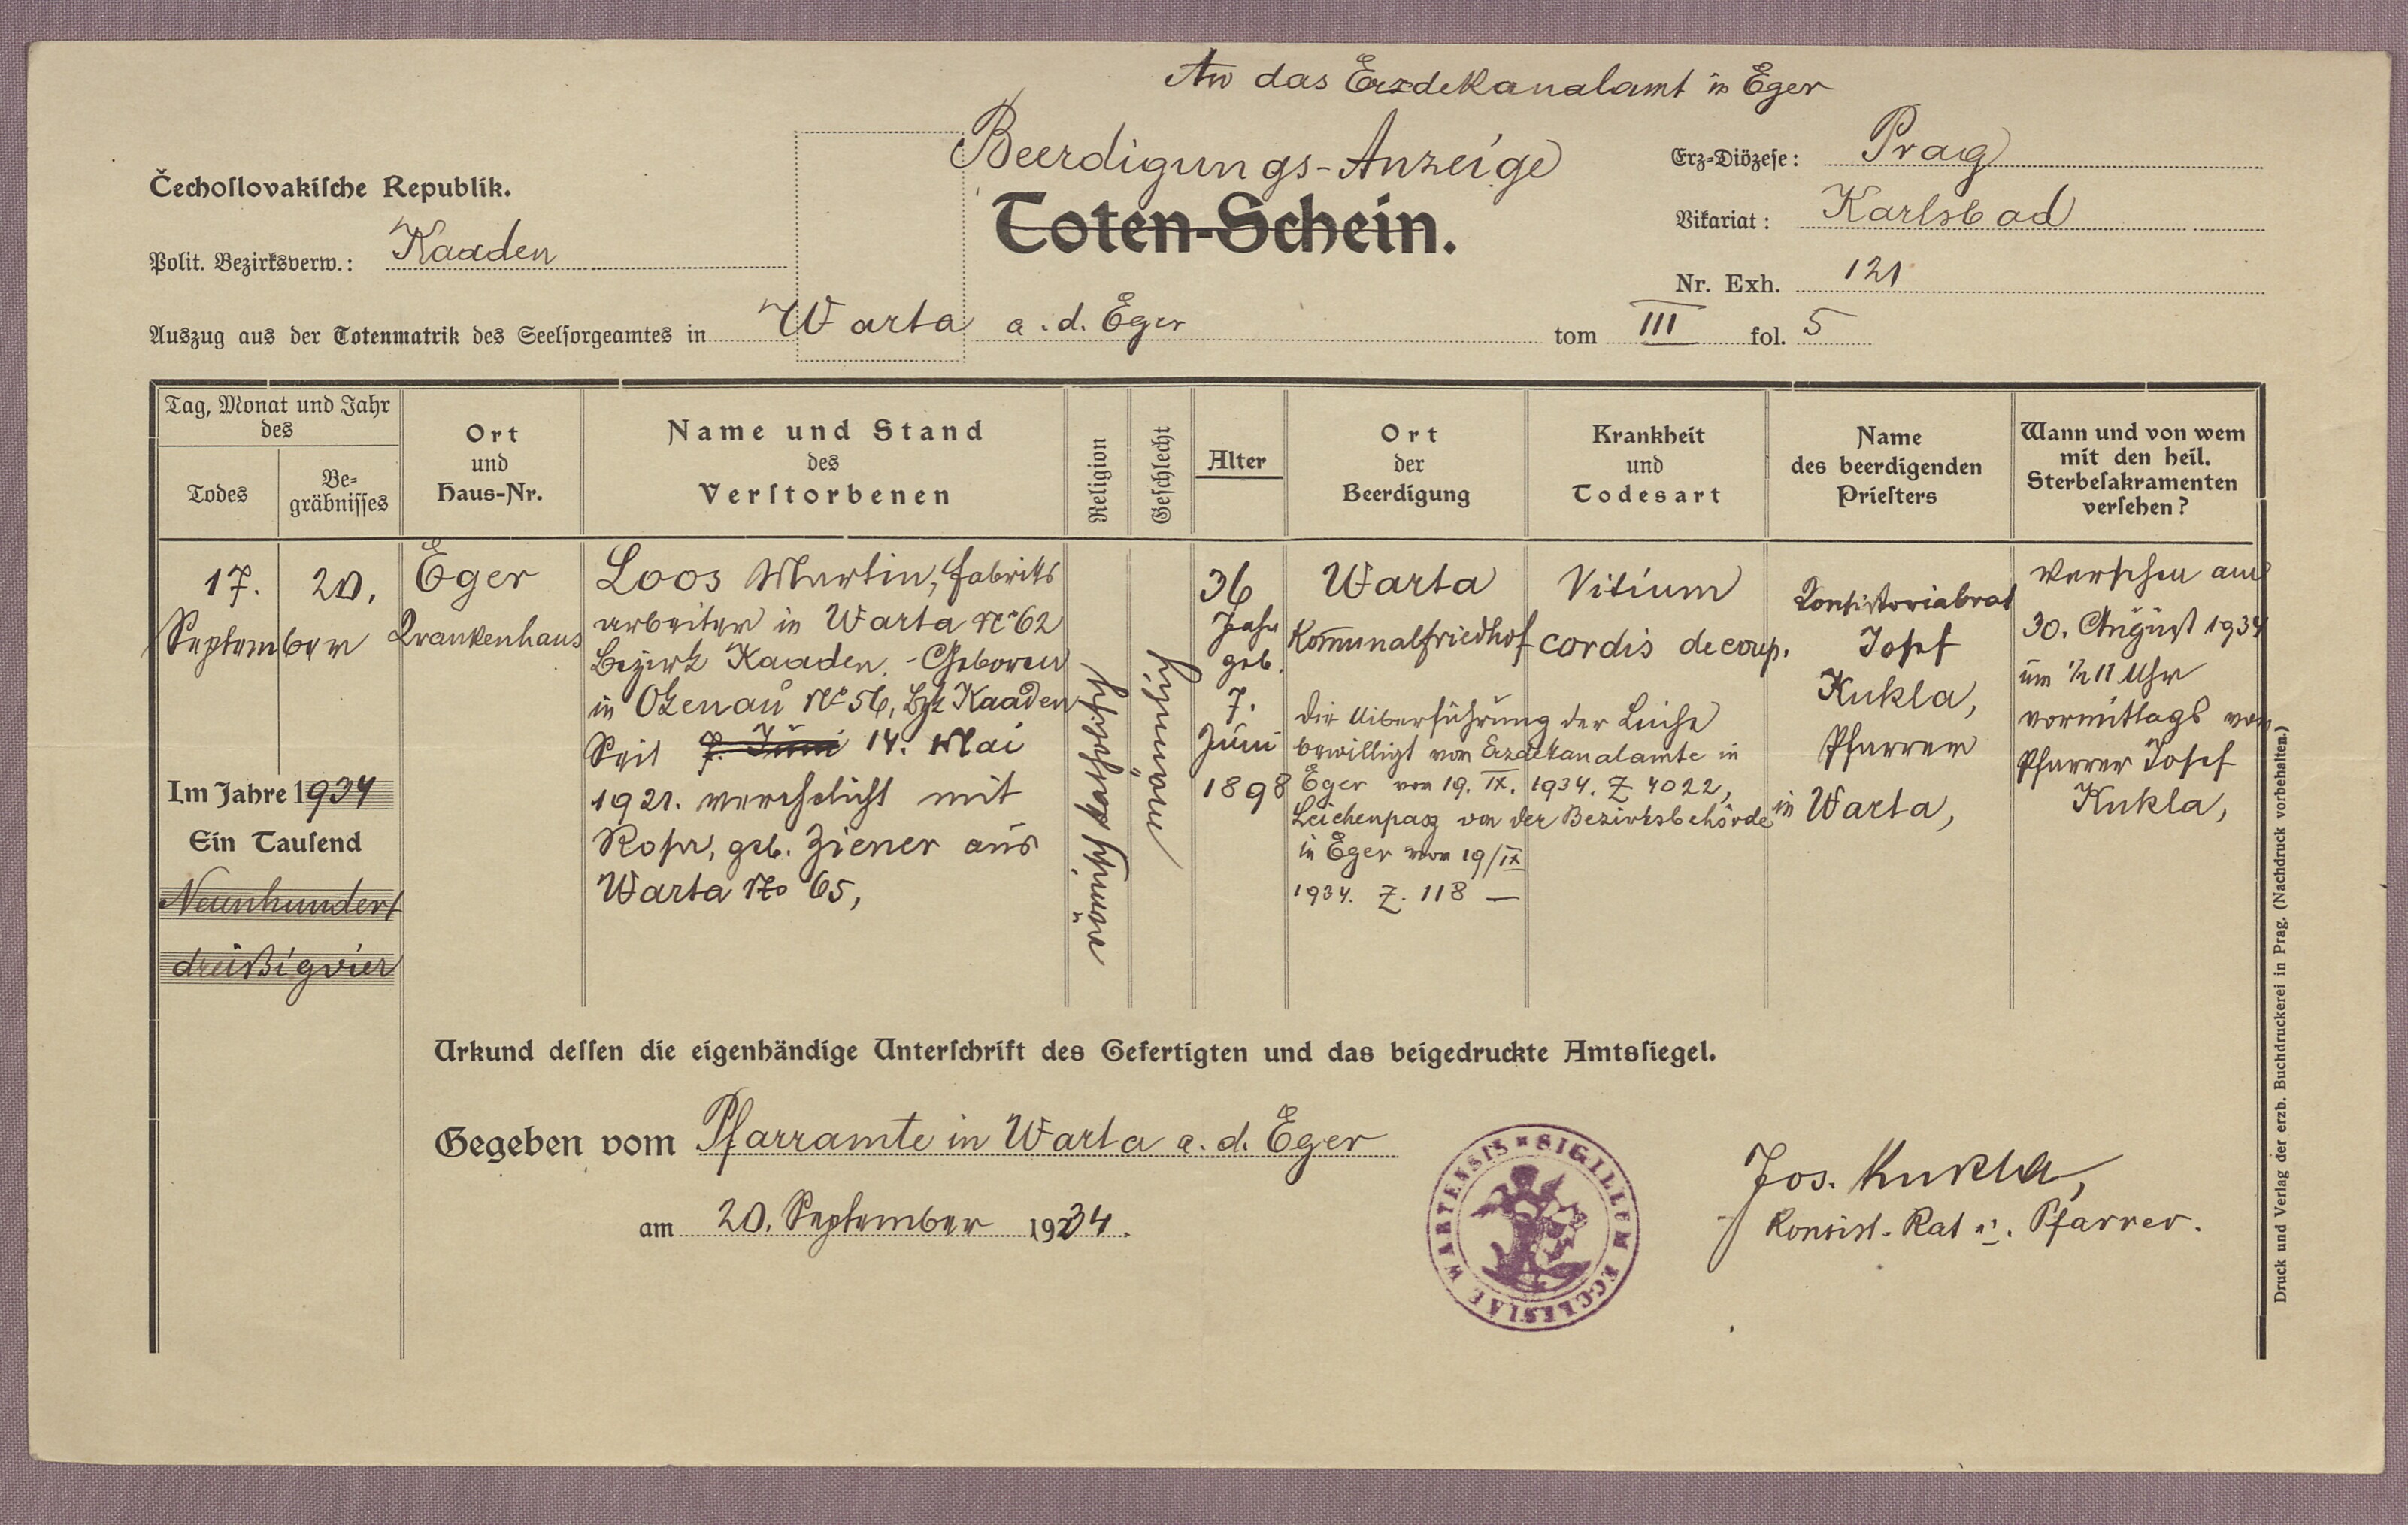 An das Erzdekanalamt in Eger
Beerdigungs-Anzeige
Toten-Schein.
Čechoslovakische Republik.
Polit. Bezirksverw.: Kaaden
Erz-Diözese: Prag
Vikariat: Karlsbad
Nr. Exh. 121
Auszug aus der Totenmatrik des Seelsorgeamtes in Warta a. d. Eger tom III fol. 5
Tag, Monat und Jahr
des
Todes
Be-
gräbnisses
Ort
und
Haus-Nr.
Name und Stand
des
Verstorbenen
Religion
Geschlecht
Alter
Ort
der
Beerdigung
Krankheit
und
Todesart
Name
des beerdigenden
Priesters
Wann und von wem
mit den heil.
Sterbesakramenten
versehen?
17. 20.
September
Im Jahre 1934
Ein Tausend
Neunhundert
dreißigvier
Eger
Krankenhaus
Loos Martin, Fabriks
arbeiter in Warta No 62
Bezirk Kaaden. - Geboren
in Okenau No 56, Bzk Kaaden
Seit 7. Juni 14. Mai
1921. verehelicht mit
Rosa, geb. Ziener aus
Warta No 65,
römisch katholisch
männlich
36
Jahr
geb.
7.
Juni
1898
Warta
Kommunalfriedhof
Die Uiberführung der Leiche
bewilligt vom Erzdekanalamte in
Eger vom 19. IX. 1934. Z. 4022,
Leichenpass von der Bezirksbehörde
in Eger vom 19/IX
1934. Z. 118 —
Vitium
cordis decomp.
Konsistorialrat
Josef
Kukla,
Pfarrer
in Warta,
Versehen am
30. August 1934
um ½ 11 Uhr
vormittags von
Pfarrer Josef
Kukla,
Urkund dessen die eigenhändige Unterschrift des Gefertigten und das beigedruckte Amtssiegel.
Gegeben vom Pfarramte in Warta a. d. Eger
am 20. September 1934.
SIGILLUM ECCLESIAE WARTENSIS
Jos. Kukla,
Konsist. Rat u. Pfarrer.
Druck und Verlag der erzb. Buchdruckerei in Prag. (Nachdruck vorbehalten.)